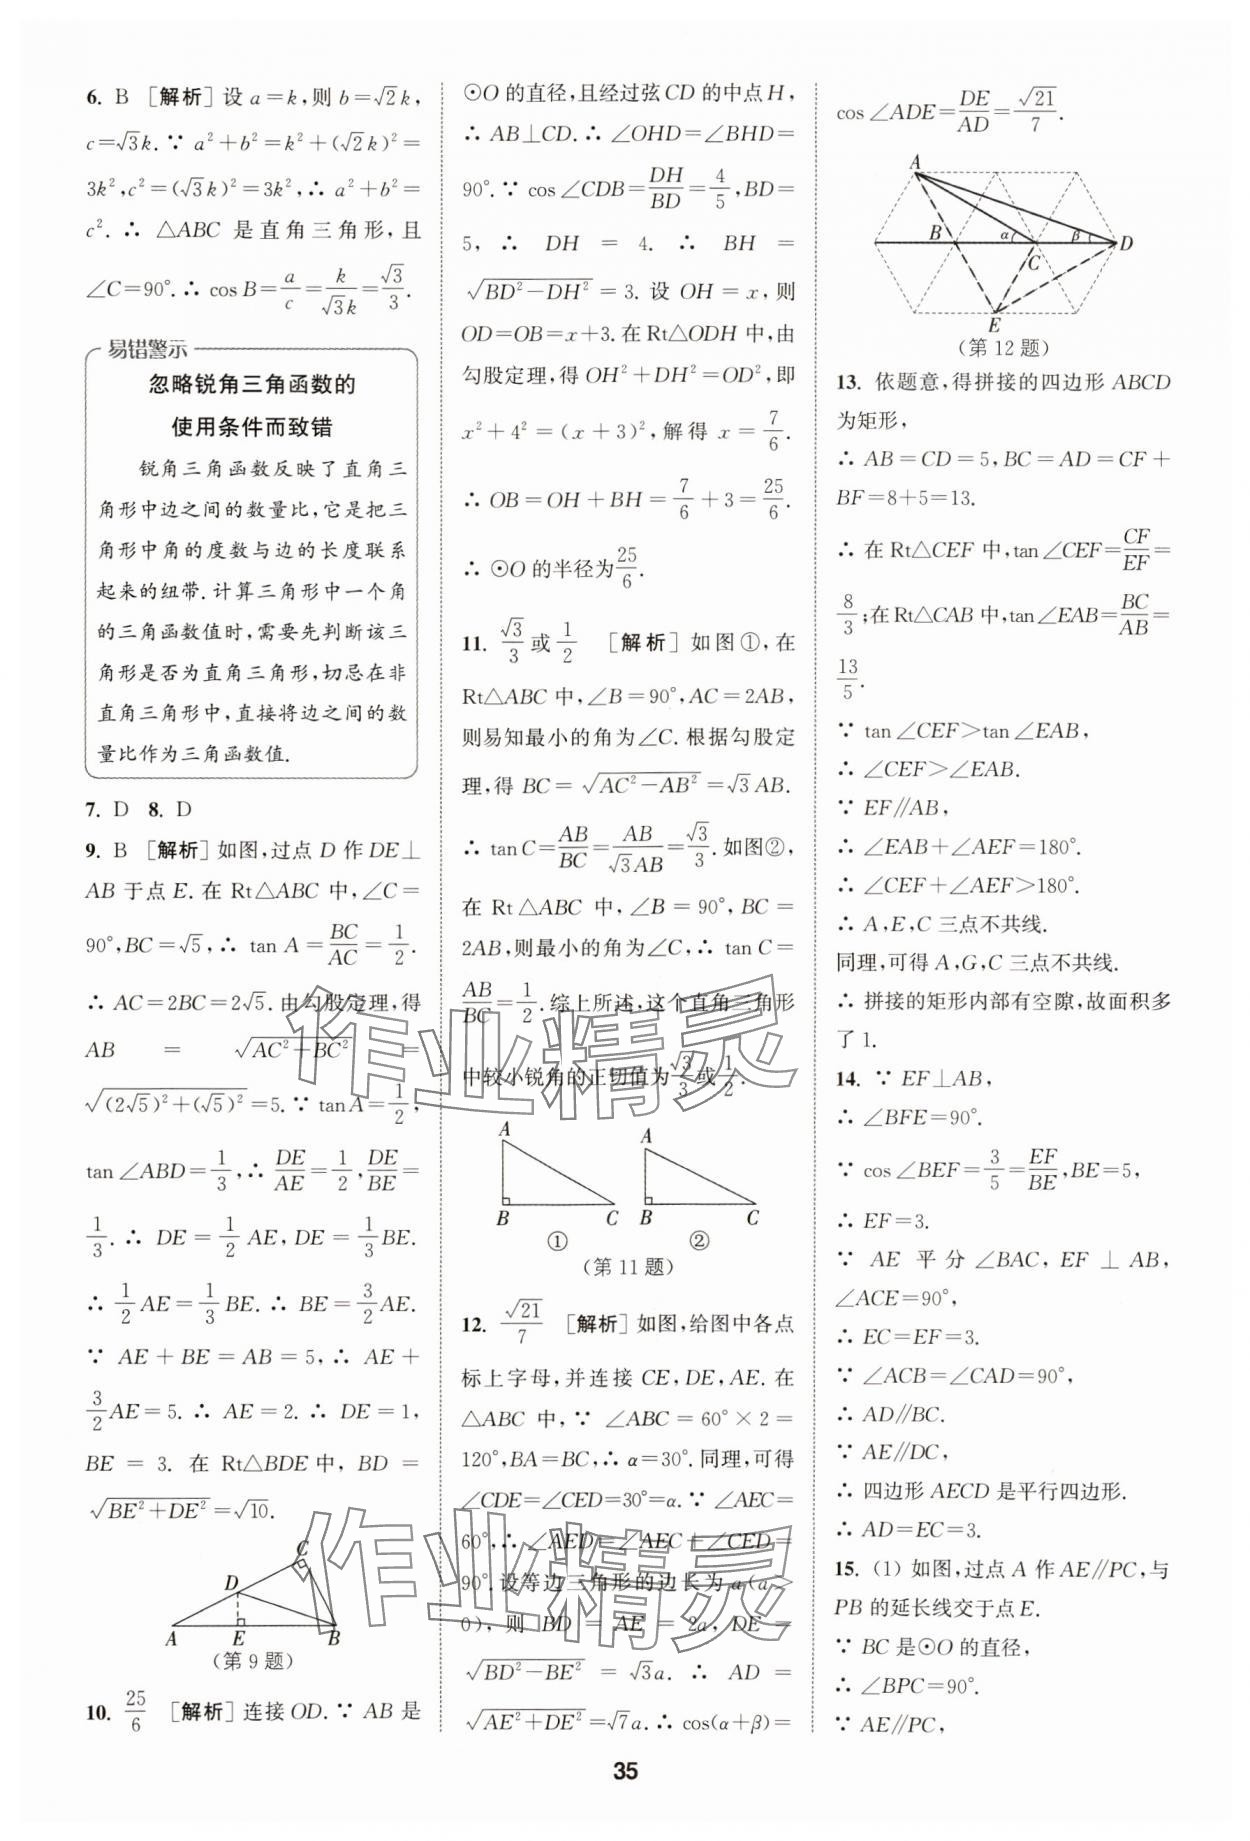 6. B [解析]设 a=k,则 b=√2k,
c=√3k. ∵ a²+b²=k²+(√2k)²=
3k²,c²=(√3k)²=3k²,∴ a²+b²=
c². ∴ △ABC 是直角三角形,且
∠C=90°. ∴ cos B=a/c=k/√3k=√3/3.
易错警示
忽略锐角三角函数的
使用条件而致错
锐角三角函数反映了直角三
角形中边之间的数量比,它是把三
角形中角的度数与边的长度联系
起来的纽带. 计算三角形中一个角
的三角函数值时,需要先判断该三
角形是否为直角三角形,切忌在非
直角三角形中,直接将边之间的数
量比作为三角函数值.
7. D 8. D
9. B [解析]如图,过点 D 作 DE⊥
AB 于点 E. 在 Rt△ABC 中,∠C=
90°,BC=√5,∴ tan A=BC/AC=1/2.
∴ AC=2BC=2√5. 由勾股定理,得
AB = √(AC²+BC²) =
√((2√5)²+(√5)²)=5. ∵ tan A=1/2,
tan∠ABD=1/3,∴ DE/AE=1/2,DE/BE=
1/3. ∴ DE=1/2AE,DE=1/3BE.
∴ 1/2AE=1/3BE. ∴ BE=3/2AE.
∵ AE+BE=AB=5,∴ AE+
3/2AE=5. ∴ AE=2. ∴ DE=1,
BE=3. 在 Rt△BDE 中,BD=
√(BE²+DE²)=√10.
C
D
A E B
(第 9 题)
10. 25/6 [解析]连接 OD. ∵ AB 是
⊙O 的直径,且经过弦 CD 的中点 H,
∴ AB⊥CD. ∴ ∠OHD=∠BHD=
90°. ∵ cos∠CDB=DH/BD=4/5,BD=
5,∴ DH=4. ∴ BH=
√(BD²−DH²)=3. 设 OH=x,则
OD=OB=x+3. 在 Rt△ODH 中,由
勾股定理,得 OH²+DH²=OD²,即
x²+4²=(x+3)²,解得 x=7/6.
∴ OB=OH+BH=7/6+3=25/6.
∴ ⊙O 的半径为25/6.
11. √3/3或1/2 [解析]如图①,在
Rt△ABC 中,∠B=90°,AC=2AB,
则易知最小的角为∠C. 根据勾股定
理,得 BC=√(AC²−AB²)=√3AB.
∴ tan C=AB/BC=AB/√3AB=√3/3. 如图②,
在 Rt△ABC 中,∠B=90°,BC=
2AB,则最小的角为∠C,∴ tan C=
AB/BC=1/2. 综上所述,这个直角三角形
中较小锐角的正切值为√3/3或1/2.
A A
B C B C
① ②
(第 11 题)
12. √21/7 [解析]如图,给图中各点
标上字母,并连接 CE,DE,AE. 在
△ABC 中,∵ ∠ABC=60°×2=
120°,BA=BC,∴ α=30°. 同理,可得
∠CDE=∠CED=30°=α. ∵ ∠AEC=
60°,∴ ∠AED=∠AEC+∠CED=
90°. 设等边三角形的边长为 a(a>
0),则 BD=AE=2a,DE=
√(BD²−BE²)=√3a. ∴ AD=
√(AE²+DE²)=√7a. ∴ cos(α+β)=
cos∠ADE=DE/AD=√21/7.
A
B α β D
C
E
(第 12 题)
13. 依题意,得拼接的四边形 ABCD
为矩形,
∴ AB=CD=5,BC=AD=CF+
BF=8+5=13.
∴ 在 Rt△CEF 中,tan∠CEF=CF/EF=
8/3;在 Rt△CAB 中,tan∠EAB=BC/AB=
13/5.
∵ tan∠CEF>tan∠EAB,
∴ ∠CEF>∠EAB.
∵ EF∥AB,
∴ ∠EAB+∠AEF=180°.
∴ ∠CEF+∠AEF>180°.
∴ A,E,C 三点不共线.
同理,可得 A,G,C 三点不共线.
∴ 拼接的矩形内部有空隙,故面积多
了 1.
14. ∵ EF⊥AB,
∴ ∠BFE=90°.
∵ cos∠BEF=3/5=EF/BE,BE=5,
∴ EF=3.
∵ AE 平分∠BAC,EF⊥AB,
∠ACE=90°,
∴ EC=EF=3.
∵ ∠ACB=∠CAD=90°,
∴ AD∥BC.
∵ AE∥DC,
∴ 四边形 AECD 是平行四边形.
∴ AD=EC=3.
15. (1) 如图,过点 A 作 AE∥PC,与
PB 的延长线交于点 E.
∵ BC 是⊙O 的直径,
∴ ∠BPC=90°.
∵ AE∥PC,
作业精灵
作业精灵
35